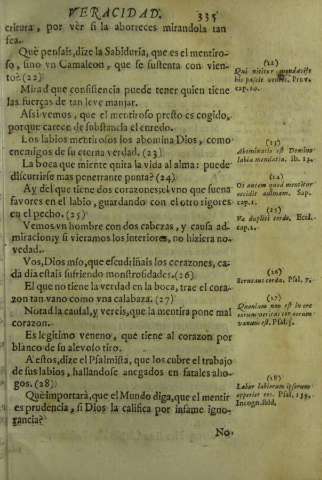 VERACIDAD. 335
critura, por ver si la aborreces mirandola tan
fea.
Què pensais, dize la Sabiduría, que es el mentiro-
so, sino vn Camaleon, que se sustenta con vien-
to? (22)
Mirad que consistencia puede tener quien tiene
las fuerças de tan leve manjar.
Assi vemos, que el mentiroso presto es cogido,
porque carece de substancia el enredo.
Los labios mentirosos los abomina Dios, como
enemigos de su eterna verdad. (23)
La boca que miente quita la vida al alma: puede
discurrirse mas penetrante ponta? (24)
Ay del que tiene dos corazones: el vno que suena
favores en el labio, guardando con el otro rigores
en el pecho. (25)
Vemos vn hombre con dos cabezas, y causa ad-
miracion; y si vieramos los interiores, no hiziera no-
vedad.
Vos, Dios mio, que escudriñais los corazones, ca-
da dia estais sufriendo monstrosidades. (26)
El que no tiene la verdad en la boca, trae el cora-
zon tan vano como vna calabaza. (27)
Notad la causal, y vereis, que la mentira pone mal
corazon.
Es legitimo veneno, que tiene al corazon por
blanco de su alevoso tiro.
A estos, dize el Psalmista, que los cubre el trabajo
de sus labios, hallandose anegados en fatales aho-
gos. (28)
Què importarà, que el Mundo diga, que el mentir
es prudencia, si Dios la califica por infame igno-
rancia?
No-
(22)
Qui nititur mendacijs
his pascit ventos. Prov.
cap. 10.
(23)
Abominatio est Domino
labia mendatia. Ib. 12.
(24)
Os autem quod mentitur
occidit animam. Sap.
cap. 1.
(25)
Væ duplici corde. Eccl.
cap. 2.
(26)
Scrutans corda. Psal. 7.
(27)
Quoniam non est in ore
eorum veritas cor eorum
vanum est. Psal. 5.
(28)
Labor labiorum ipsorum
operiet eos. Psal. 139.
Incogn. ibid.